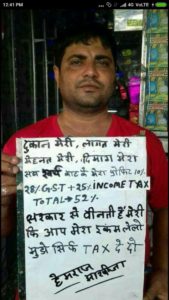 12:41 PM
4G VoLTE
दुकान मेरी, लागत मेरी
मेहनत मेरी, दिमाग मेरा
सब काट के मेरा प्रॉफिट 10%
28%GST+25%INCOME TAX
TOTAL→52%
सरकार से वीनती है मेरी
कि आप मेरा इकम लेलो
मुझे सिर्फ TAX दे दो
हेमराज